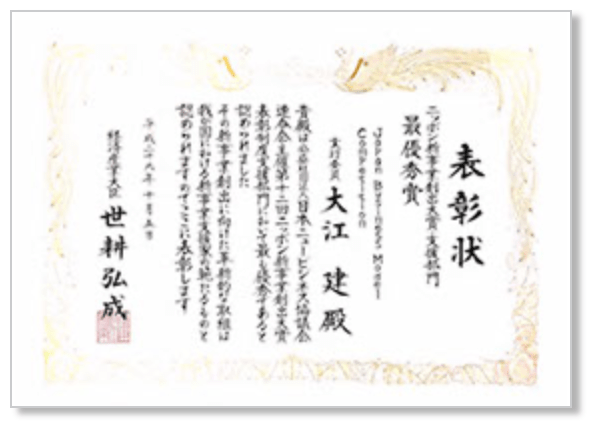 表彰状
ニッポン新事業創出大賞・支援部門
最優秀賞
Japan Business Model
Competition
実行委員 大江 建 殿
貴殿は公益社団法人日本ニュービジネス協議会
連合会主催第十二回ニッポン新事業創出大賞
表彰制度支援部門において最も優秀であると
認められました
その新事業創出に向けた革新的な取組は
我が国における新事業支援策の範たるものと
認められますのでここに表彰します
平成二十九年十月五日
経済産業大臣 世耕弘成